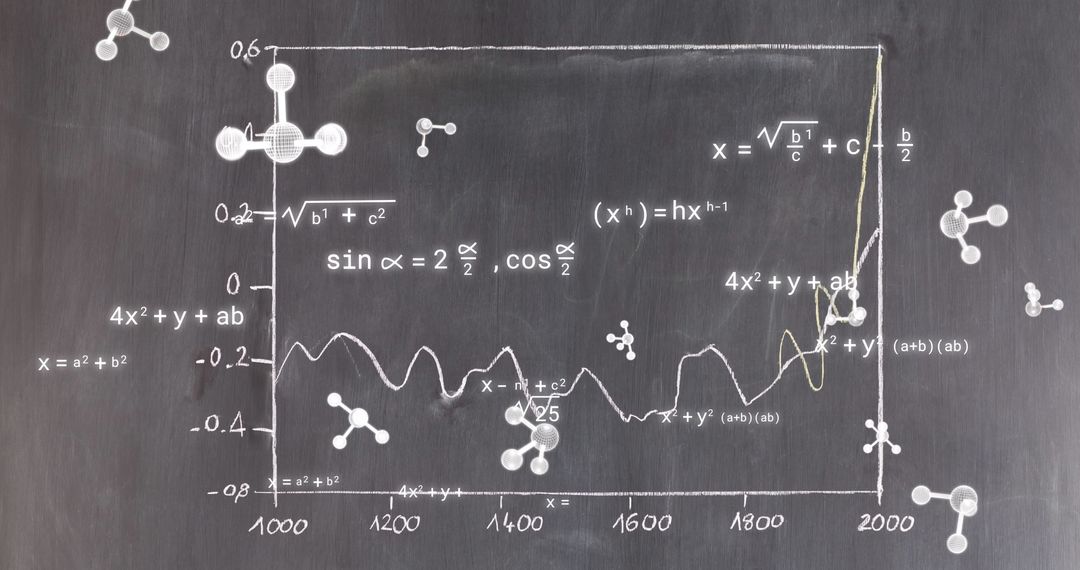 0.6
x = √b¹/c + c + b/2
0.2
a² = √b¹ + c²
(xʰ) = hxʰ⁻¹
sin ∝ = 2 ∝/2 , cos ∝/2
0
4x² + y + ab
4x² + y + ab
x² + y² (a+b)(ab)
-0.2
x = a² + b²
x – n¹ + c²
√25
x² + y² (a+b)(ab)
-0.4
x = a² + b²
-08
4x² + y +
x =
1000 1200 1400 1600 1800 2000